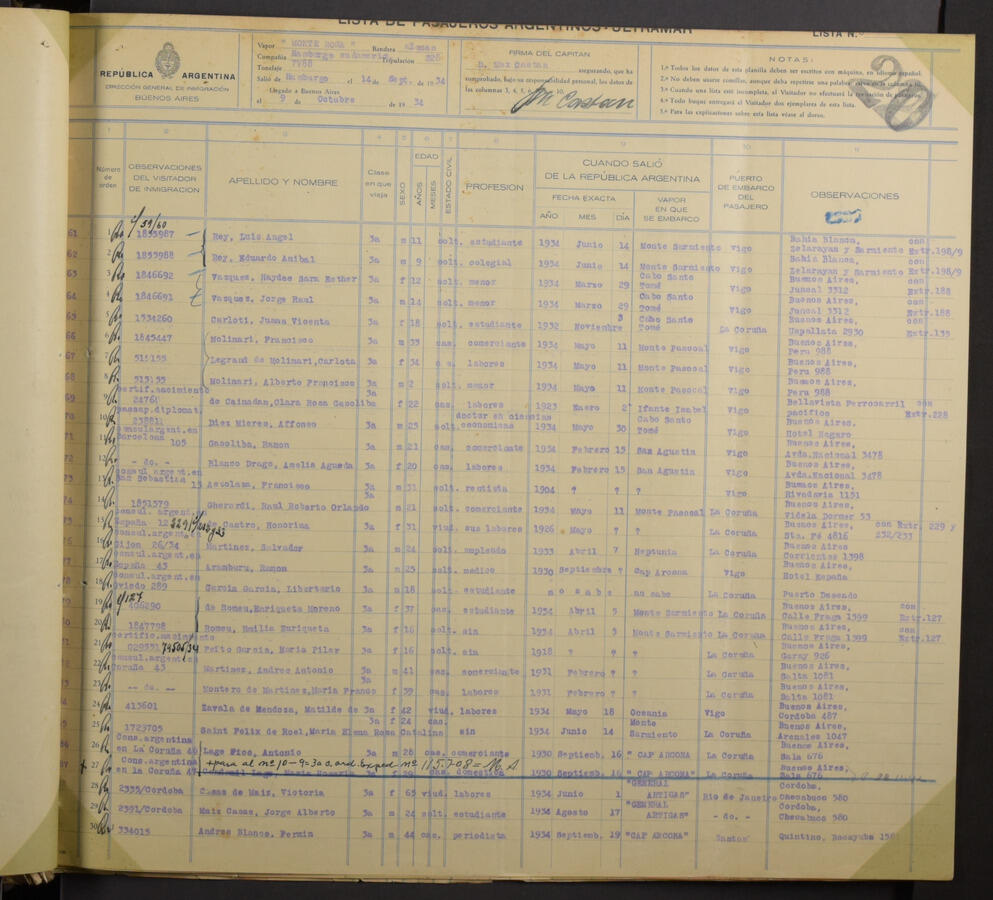 LISTA DE PASAJEROS ARGENTINOS - ULTRAMAR
LISTA N.º
REPÚBLICA ARGENTINA
DIRECCIÓN GENERAL DE INMIGRACIÓN
BUENOS AIRES
Vapor "MONTE ROSA" Bandera aleman
Compañía Hamburgo sudameric. Tripulación 226
Tonelaje 7788
Salió de Hamburgo el 14 de Sept. de 1934
Llegado a Buenos Aires
el 9 de Octubre de 1934
FIRMA DEL CAPITAN
D. Max Castan asegurando, que ha
comprobado, bajo su responsabilidad personal, los datos de
las columnas 3, 4, 5, 6
M Castan
NOTAS:
1.º Todos los datos de esta planilla deben ser escritos con máquina, en idioma español.
2.º No deben usarse comillas, aunque deba repetirse una palabra
3.º Cuando una lista esté incompleta, el Visitador no efectuará la
4.º Todo buque entregará al Visitador dos ejemplares de esta lista.
5.º Para las explicaciones sobre esta lista véase al dorso.
20
Número de orden
OBSERVACIONES DEL VISITADOR DE INMIGRACION
APELLIDO Y NOMBRE
Clase en que viaja
SEXO
EDAD
AÑOS
MESES
ESTADO CIVIL
PROFESION
CUANDO SALIÓ DE LA REPÚBLICA ARGENTINA
FECHA EXACTA
AÑO MES DÍA
VAPOR EN QUE SE EMBARCO
PUERTO DE EMBARCO DEL PASAJERO
OBSERVACIONES
61 1 1855987 Rey, Luis Angel 3a m 11 solt. estudiante 1934 Junio 14 Monte Sarmiento Vigo Bahia Blanca, con Zelarayan y Sarmiento Extr.198/9
62 2 1855988 Rey, Eduardo Anibal 3a m 9 solt. colegial 1934 Junio 14 Monte Sarmiento Vigo Bahia Blanca, con Zelarayan y Sarmiento Extr.198/9
63 3 1846692 Vazquez, Haydee Sara Esther 3a f 12 solt. menor 1934 Marzo 29 Cabo Santo Tomé Vigo Buenos Aires, con Juncal 3312 Extr.188
64 4 1846691 Vazquez, Jorge Raul 3a m 14 solt. menor 1934 Marzo 29 Cabo Santo Tomé Vigo Buenos Aires, con Juncal 3312 Extr.188
65 5 1534260 Carloti, Juana Vicenta 3a f 18 solt. estudiante 1932 Noviembre 3 Cabo Santo Tomé La Coruña Buenos Aires, con Uspallata 2930 Extr.135
66 6 1845447 Molinari, Francisco 3a m 33 cas. comerciante 1934 Mayo 11 Monte Pascoal Vigo Buenos Aires, Peru 988
67 7 515155 Legrand de Molinari,Carlota 3a f 34 labores 1934 Mayo 11 Monte Pascoal Vigo Buenos Aires, Peru 988
68 8 515155 Molinari, Alberto Francisco 3a m 2 solt. menor 1934 Mayo 11 Monte Pascoal Vigo Buenos Aires, Peru 988
69 9 Certif.nacimiento 24761 de Cainadas,Clara Rosa Gasoliba 3a f 22 cas. labores 1923 Enero 2 Ifante Isabel Vigo Bellavista Ferrocarril con pacifico Extr.228
70 10 passap.diplomat. 238811 Diez Mieres, Affonso m 25 solt. doctor en ciencias economicas 1934 Mayo 30 Cabo Santo Tomé Vigo Buenos Aires, Hotel Magaro
71 11 Consul argent.en Barcelona 105 Gasoliba, Ramon 3a m 21 cas. comerciante 1934 Febrero 15 San Agustin Vigo Buenos Aires, Avda.Nacional 3478
72 12 - do. - Blanco Drago, Amelia Agueda 3a f 20 cas. labores 1934 Febrero 15 San Agustin Vigo Buenos Aires, Avda.Nacional 3478
73 13 Consul argent.en San Sebastian 15 Ascolana, Francisco 3a m 31 solt. rentista 1904 ? ? Vigo Buenos Aires, Rivadavia 1151
74 14 1851579 Gherardi, Raul Roberto Orlando 3a m 21 solt. comerciante 1934 Mayo 11 Monte Pascoal La Coruña Buenos Aires, Videla Dorner 53
15 Consul. argent. España 12 de Castro, Honorina 3a f 31 viud. sus labores 1926 Mayo ? ? La Coruña Buenos Aires, con Extr. 229 y Sta. Fé 4816 232/233
16 Consul.argent.en Gijon 26/34 Martinez, Salvador 3a m 24 solt. empleado 1933 Abril 7 Neptunia La Coruña Buenos Aires Corrientes 1398
17 Consul.argent.en España 43 Aramburu, Ramon 3a m 25 solt. medico 1930 Septiembre ? Cap Arcona Vigo Buenos Aires, Hotel España
18 Consul.argent.en Oviedo 289 Garcia Garcia, Libertario 3a m 18 solt. estudiante no sabe no sabe La Coruña Puerto Deseado
19 c/127 406290 de Romeu,Enriqueta Moreno 3a f 37 cas. estudiante 1934 Abril 5 Monte Sarmiento La Coruña Buenos Aires, con Calle Praga 1399 Extr.127
20 1847798 Romeu, Emilia Enriqueta 3a f 16 solt. sin 1934 Abril 5 Monte Sarmiento La Coruña Buenos Aires, con Calle Praga 1399 Extr.127
21 Certific.nacimiento 029551 Feito Garcia, Maria Pilar 3a f 16 solt. sin 1918 ? ? La Coruña Buenos Aires, Garay 926
22 Consul.argent.en Coruña 43 Martinez, Andres Antonio 3a m 41 cas. comerciante 1931 Febrero ? ? La Coruña Buenos Aires, Salta 1081
23 -- do. -- Montero de Martinez,Maria Franco 3a f 39 cas. labores 1931 Febrero ? ? La Coruña Buenos Aires, Salta 1081
24 413601 Zavala de Mendoza, Matilde de 3a f 42 viud. labores 1934 Mayo 18 Oceania Vigo Buenos Aires, Cordoba 487
25 1723705 Saint Felix de Roel,Maria Elena Rosa Catalina 3a f 24 cas. sin 1934 Junio 14 Monte Sarmiento La Coruña Buenos Aires, Arenales 1047
26 Cons.argentino en La Coruña 46 Lage Pico, Antonio 3a m 28 cas. comerciante 1930 Septiemb. 16 "CAP ARCONA" La Coruña Buenos Aires, Sala 676
+ para al nº 10-9=3a c. ord. Exped nº 115.708=M.A
27 Cons.argentino en la Coruña 47 f 29 cas. domestica 1930 Septiemb. 16 "CAP ARCONA" La Coruña Buenos Aires, Sala 676
28 2335/Cordoba Casas de Mais, Victoria 3a f 65 viud. labores 1934 Junio 1 "GENERAL ARTIGAS" Rio de Janeiro Cordoba, Chacabuco 580
29 2391/Cordoba Mais Casas, Jorge Alberto 3a m 24 solt. estudiante 1934 Agosto 17 "GENERAL ARTIGAS" - do. - Cordoba, Chacabuco 580
30 334015 Andres Blanco, Fermin 3a m 44 cas. periodista 1934 Septiemb. 19 "CAP ARCONA" Santos Quintino, Bocayuba